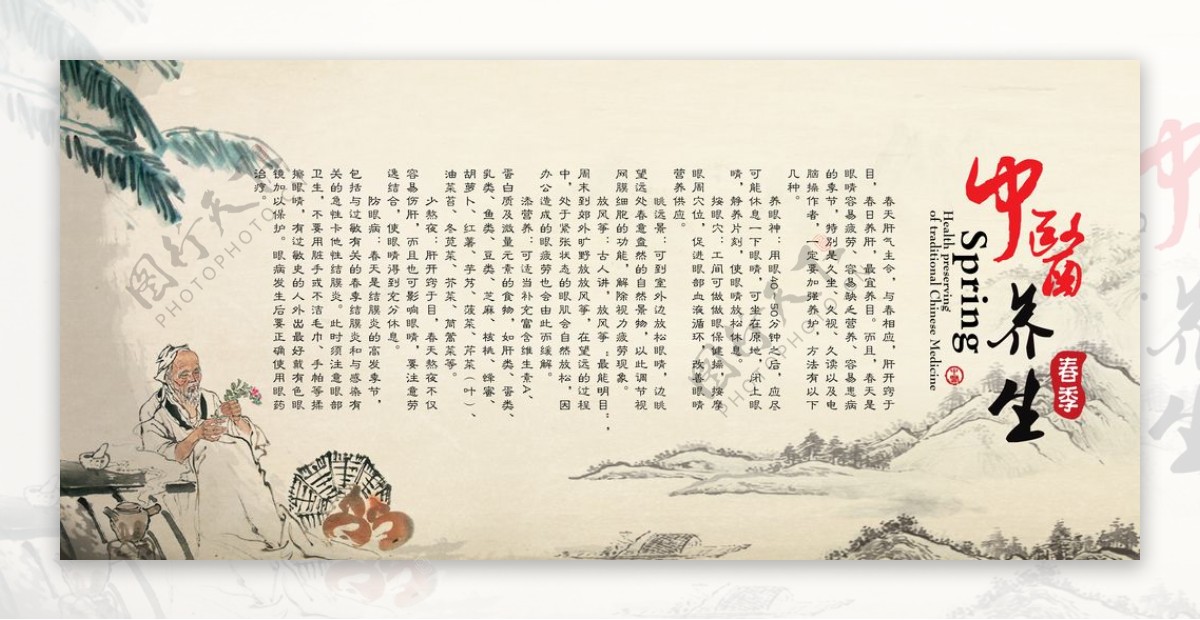 中醫养生
春季
Spring
Health preserving
of traditional Chinese Medicine
春天肝气主令，与春相应，肝开窍于
目，春日养肝，最宜养目。而且，春天是
眼睛容易疲劳、容易缺乏营养、容易患病
的季节，特别是久坐、久视、久读以及电
脑操作者，一定要加强养护，方法有以下
几种。
养眼神：用眼40-50分钟之后，应尽
可能休息一下眼睛，可坐在原地，闭上眼
睛，静养片刻，使眼睛放松休息。
按眼穴：工间可做做眼保健操，按摩
眼周穴位，促进眼部血液循环，改善眼睛
营养供应。
眺远景：可到室外边放松眼睛，边眺
望远处春意盎然的自然景物，以此调节视
网膜细胞的功能，解除视力疲劳现象。
放风筝：古人讲，放风筝“最能明目”，
周末到郊外旷野放放风筝，在望远的过程
中，处于紧张状态的眼肌会自然放松，因
办公造成的眼疲劳也会由此而缓解。
添营养：可适当补充富含维生素A、
蛋白质及微量元素的食物，如肝类、蛋类、
乳类、鱼类、豆类、芝麻、核桃、蜂蜜、
胡萝卜、红薯、芋艿、菠菜、芹菜（叶）、
油菜苔、冬苋菜、芥菜、茼蒿菜等。
少熬夜：肝开窍于目，春天熬夜不仅
容易伤肝，而且也可影响眼睛，要注意劳
逸结合，使眼睛得到充分休息。
防眼病：春天是结膜炎的高发季节，
包括与过敏有关的春季结膜炎和与感染有
关的急性卡他性结膜炎。此时须注意眼部
卫生，不要用脏手或不洁毛巾、手帕等揉
擦眼睛，有过敏史的人外出最好戴有色眼
镜加以保护。眼病发生后要正确使用眼药
治疗。
图行天下
PHOTOPHOTO.CN